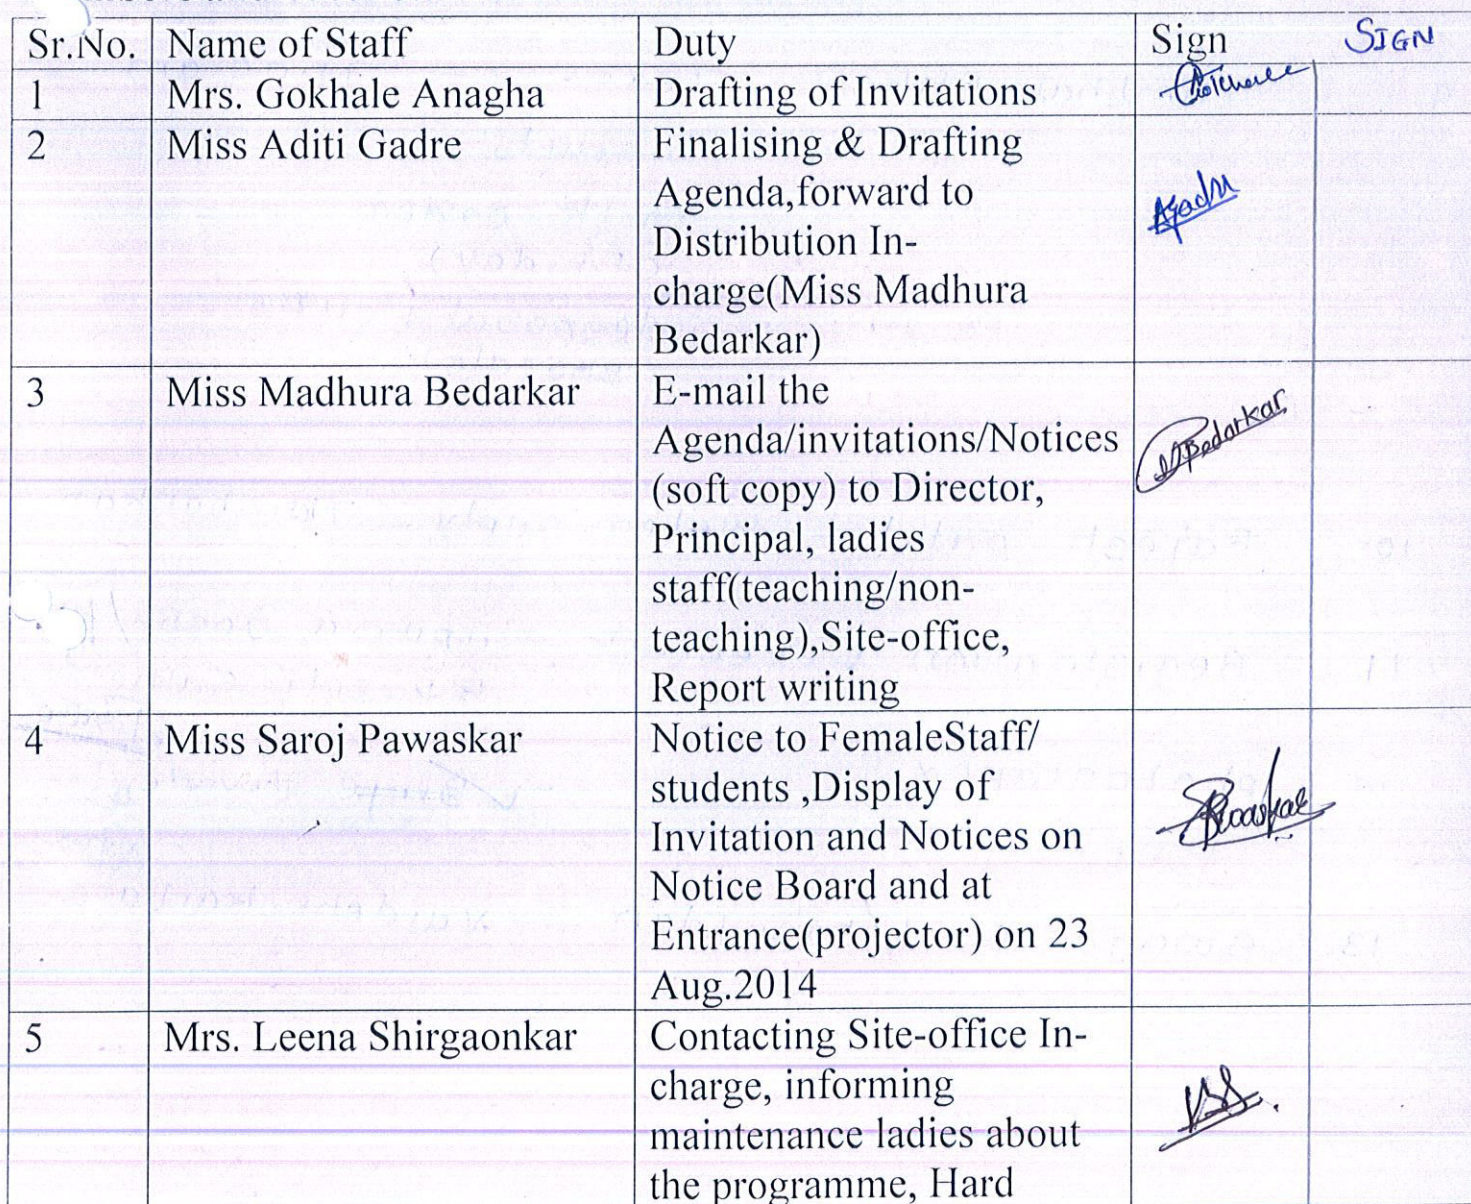 Sr.No. Name of Staff Duty Sign SIGN
1 Mrs. Gokhale Anagha Drafting of Invitations
2 Miss Aditi Gadre Finalising & Drafting
Agenda,forward to
Distribution In-
charge(Miss Madhura
Bedarkar)
3 Miss Madhura Bedarkar E-mail the
Agenda/invitations/Notices MBedarkar
(soft copy) to Director,
Principal, ladies
staff(teaching/non-
teaching),Site-office,
Report writing
4 Miss Saroj Pawaskar Notice to FemaleStaff/
students ,Display of
Invitation and Notices on
Notice Board and at
Entrance(projector) on 23
Aug.2014
5 Mrs. Leena Shirgaonkar Contacting Site-office In-
charge, informing
maintenance ladies about
the programme, Hard